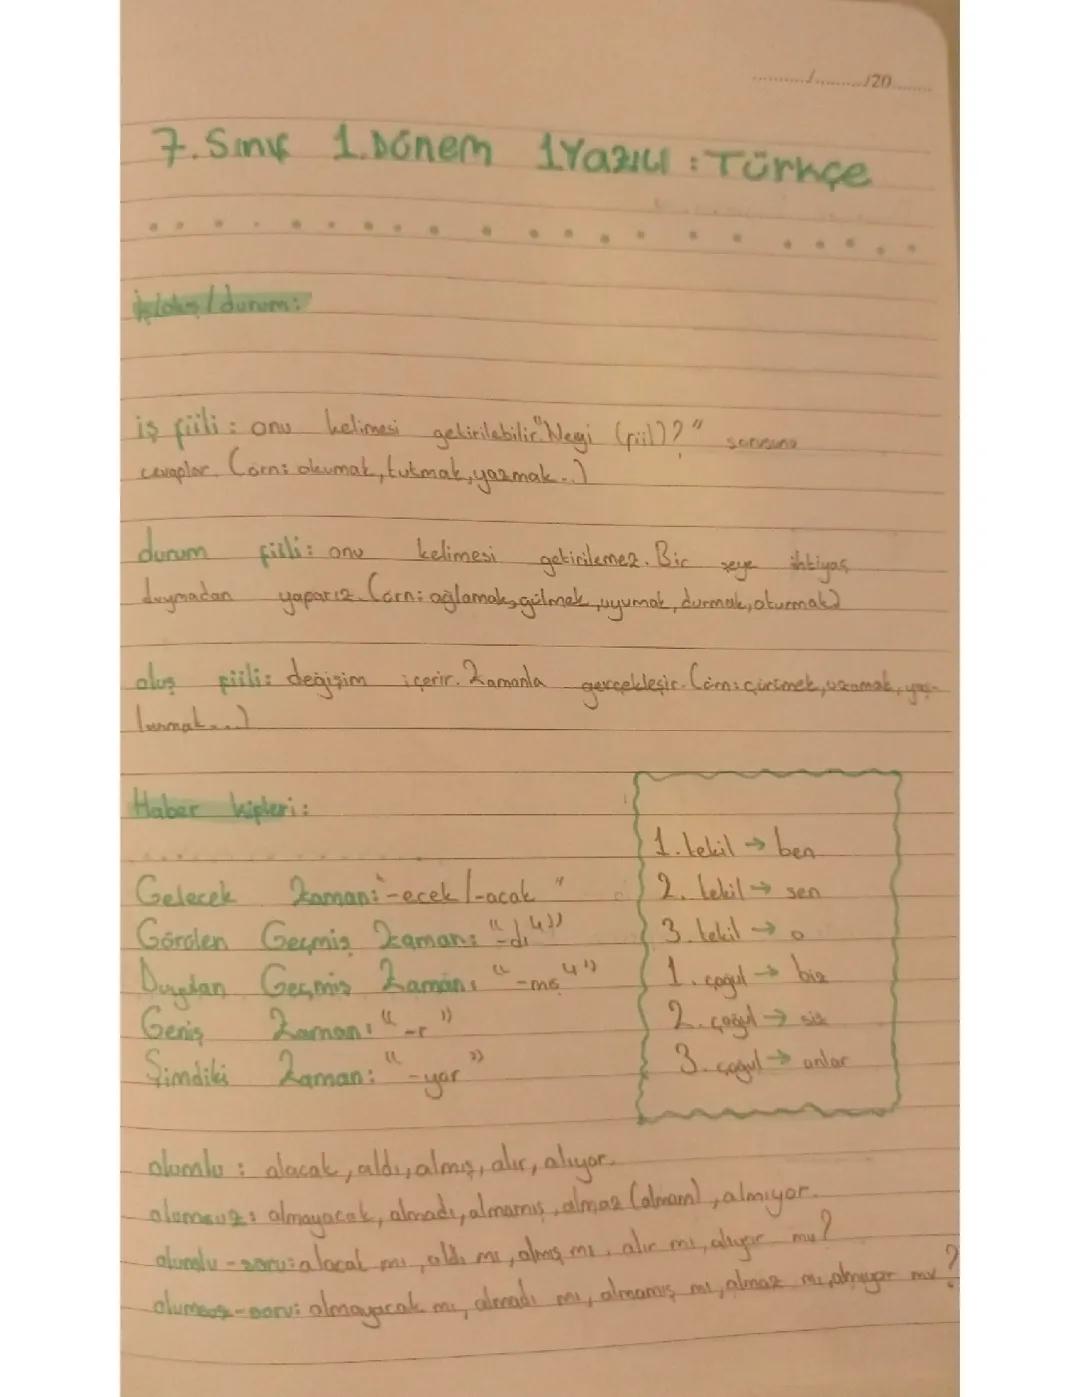 ....../......./20.......
7.Sınıf 1.Dönem 1Yazılı : Türkçe
İş/oluş/durum:
iş fiili : onu kelimesi getirilebilir. "Neyi (fiil)?" sorusuna
cevaplar. (örn: okumak, tutmak, yazmak...)
durum fiili: onu kelimesi getirilemez. Bir şeye ihtiyaç
duymadan yaparız. (örn: ağlamak, gülmek, uyumak, durmak, oturmak)
oluş fiili: değişim içerir. Zamanla gerçekleşir. (örn: çürümek, uzamak, yaş-
lanmak...)
Haber kipleri:
Gelecek Zaman: "-ecek/-acak"
Görülen Geçmiş Zaman: "-dı4"
Duyulan Geçmiş Zaman: "-mış4"
Geniş Zaman: "-r"
Şimdiki Zaman: "-yor"
1. tekil → ben
2. tekil → sen
3. tekil → o
1. çoğul → biz
2. çoğul → siz
3. çoğul → onlar
olumlu : alacak, aldı, almış, alır, alıyor.
olumsuz : almayacak, almadı, almamış, almaz (almam), almıyor.
olumlu-soru: alacak mı, aldı mı, almış mı, alır mı, alıyor mu?
olumsuz-soru: almayacak mı, almadı mı, almamış mı, almaz mı, almıyor mu?